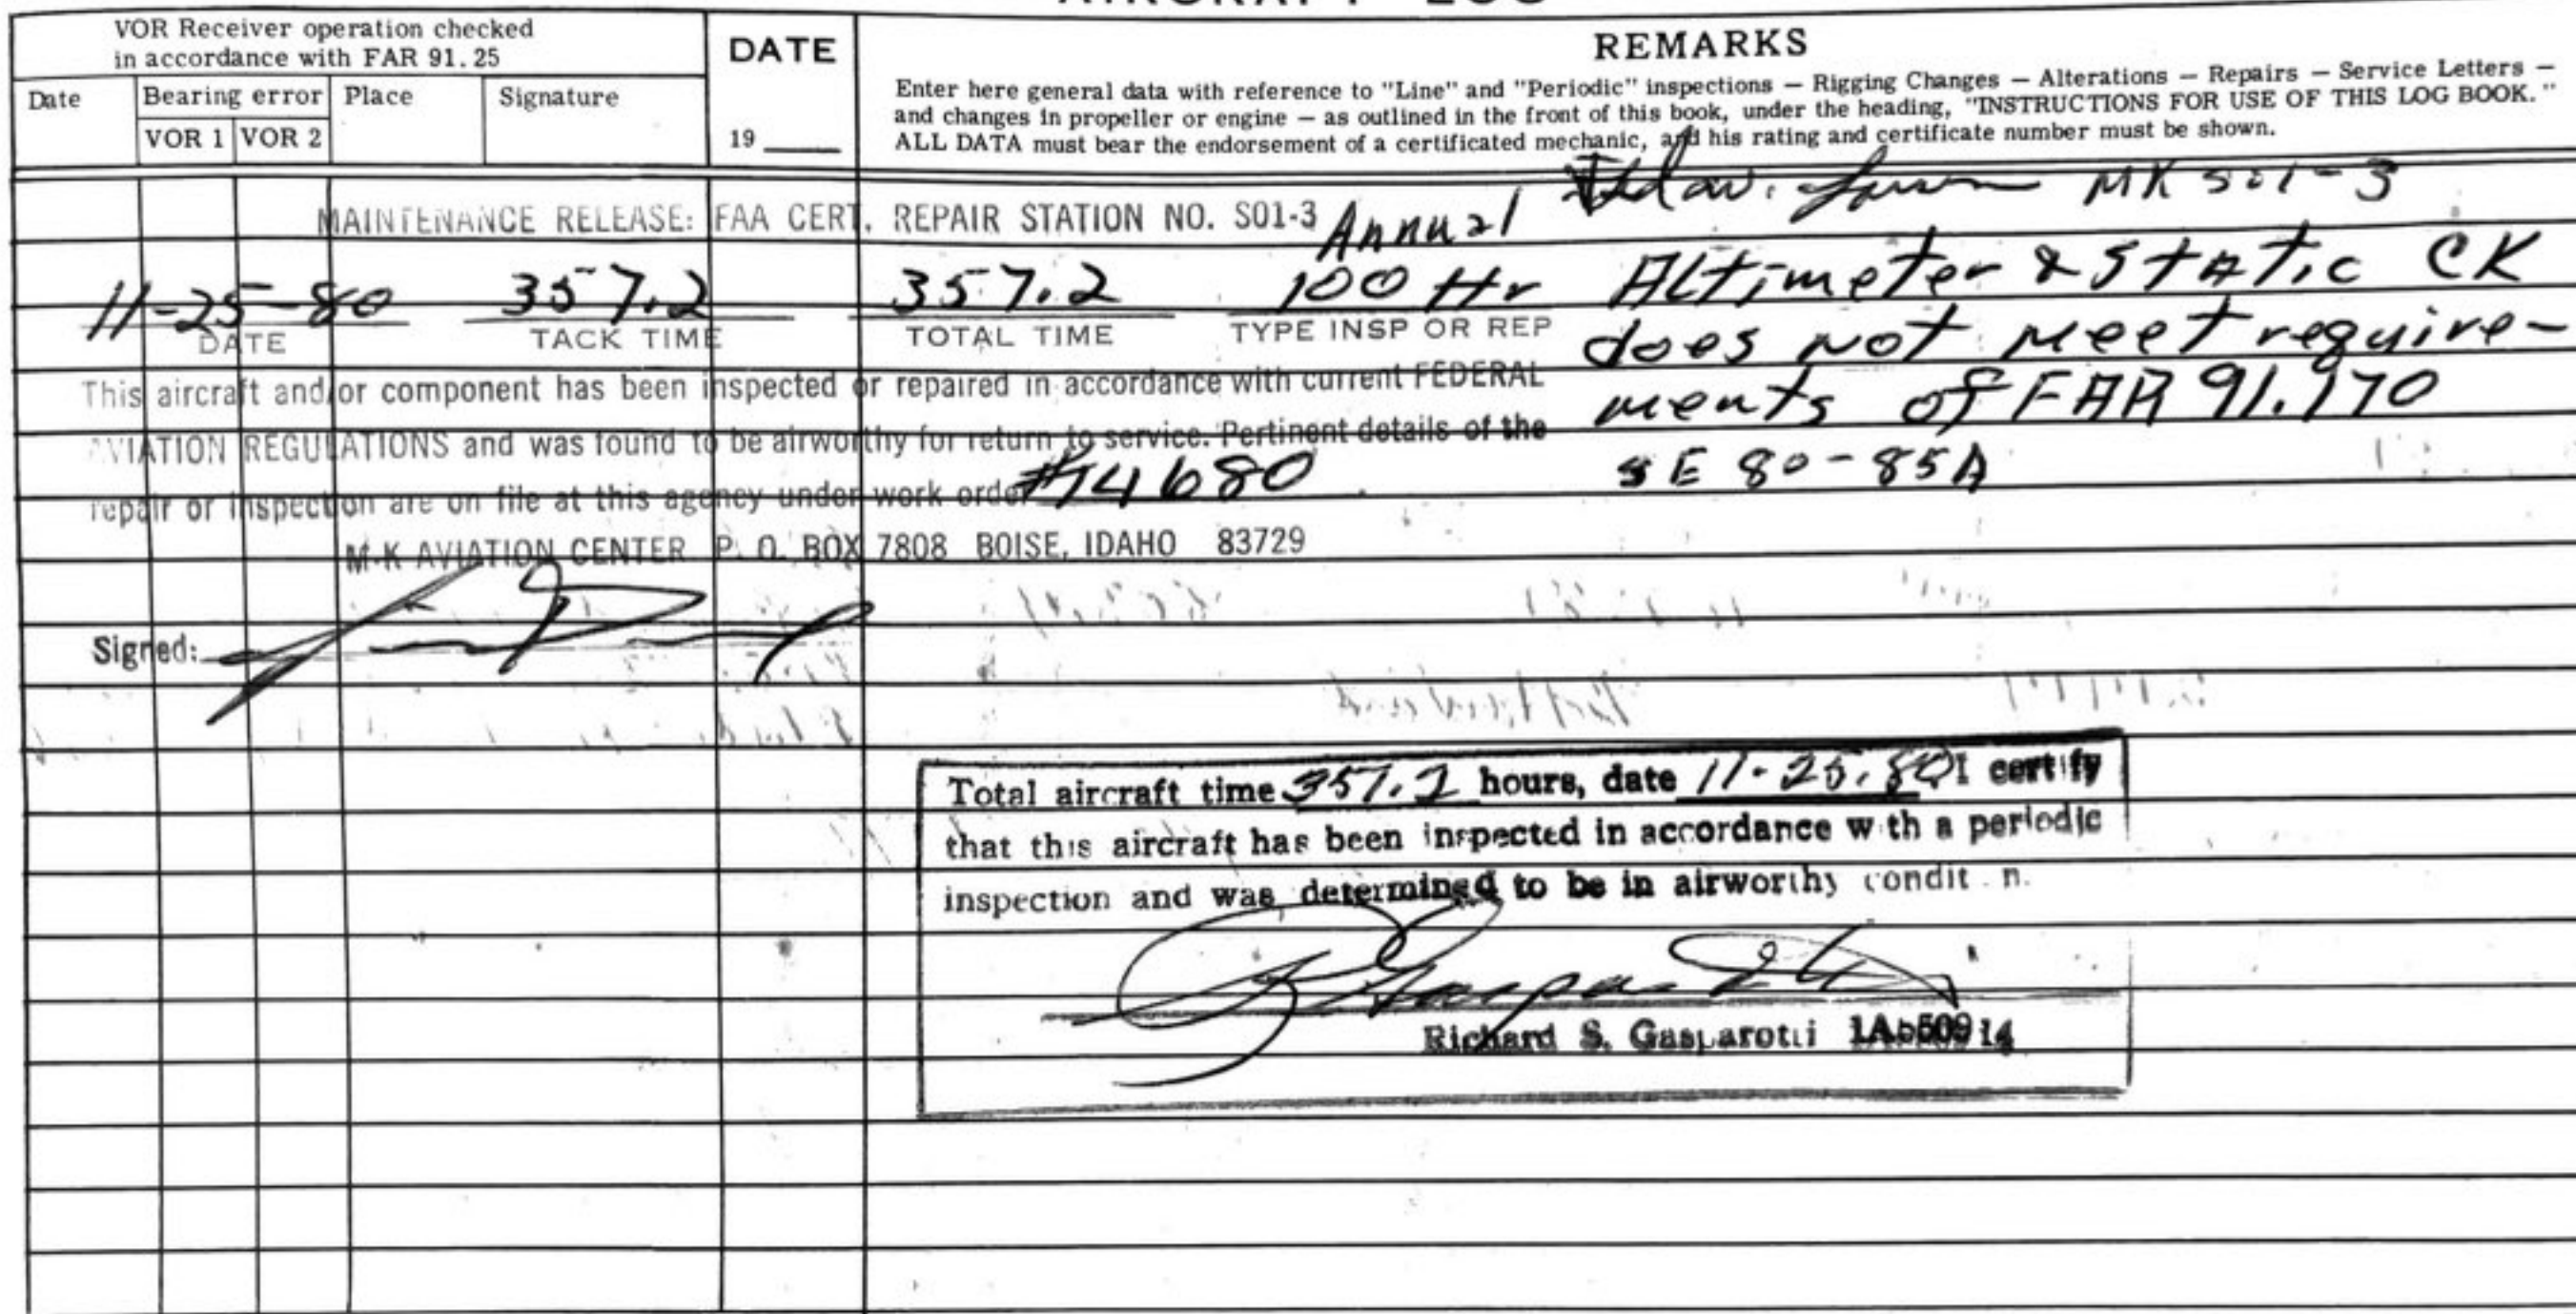 AIRCRAFT LOG
VOR Receiver operation checked
in accordance with FAR 91.25
Date
Bearing error
VOR 1 VOR 2
Place
Signature
DATE
19
REMARKS
Enter here general data with reference to "Line" and "Periodic" inspections — Rigging Changes — Alterations — Repairs — Service Letters —
and changes in propeller or engine — as outlined in the front of this book, under the heading, "INSTRUCTIONS FOR USE OF THIS LOG BOOK."
ALL DATA must bear the endorsement of a certificated mechanic, and his rating and certificate number must be shown.
MK S01-3
MAINTENANCE RELEASE: FAA CERT. REPAIR STATION NO. S01-3
Annual
11-25-80 357.2 357.2 100 Hr
DATE TACK TIME TOTAL TIME TYPE INSP OR REP
Altimeter & Static CK
does not meet require-
ments of FAR 91.170
SE 80-85A
This aircraft and/or component has been inspected or repaired in accordance with current FEDERAL
AVIATION REGULATIONS and was found to be airworthy for return to service. Pertinent details of the
repair or inspection are on file at this agency under work order #14680
M-K AVIATION CENTER P. O. BOX 7808 BOISE, IDAHO 83729
Signed:
Total aircraft time 357.2 hours, date 11-25-80 I certify
that this aircraft has been inspected in accordance with a periodic
inspection and was determined to be in airworthy condit n.
Richard S. Gasparotti